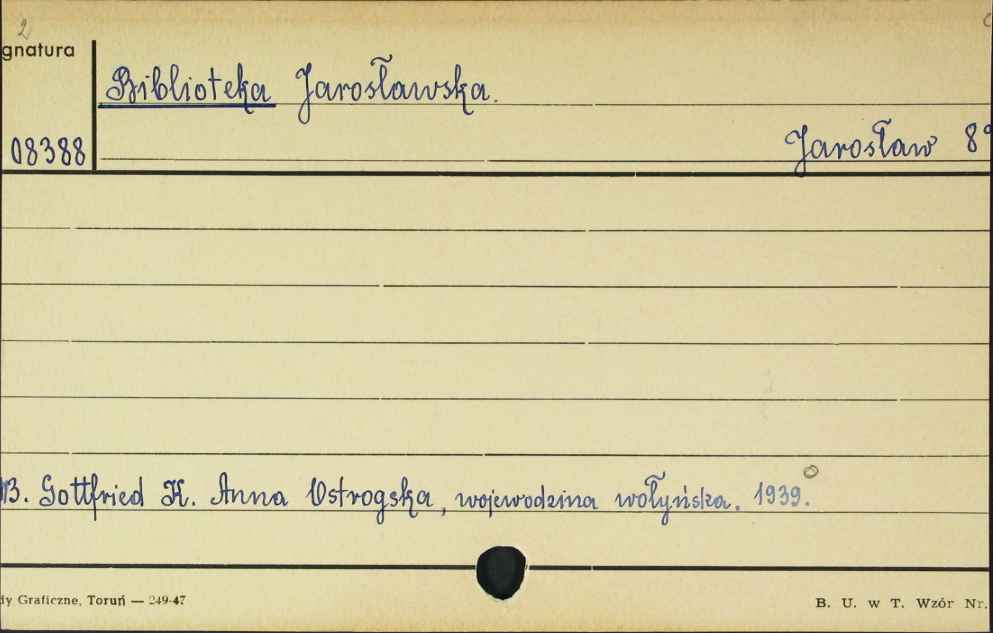 2
gnatura
Biblioteka Jarosławska.
08388
Jarosław 8°
13. Gottfried K. Anna Ostrogska, wojewodzina wołyńska. 1939.
dy Graficzne, Toruń — 249-47
B. U. w T. Wzór Nr.